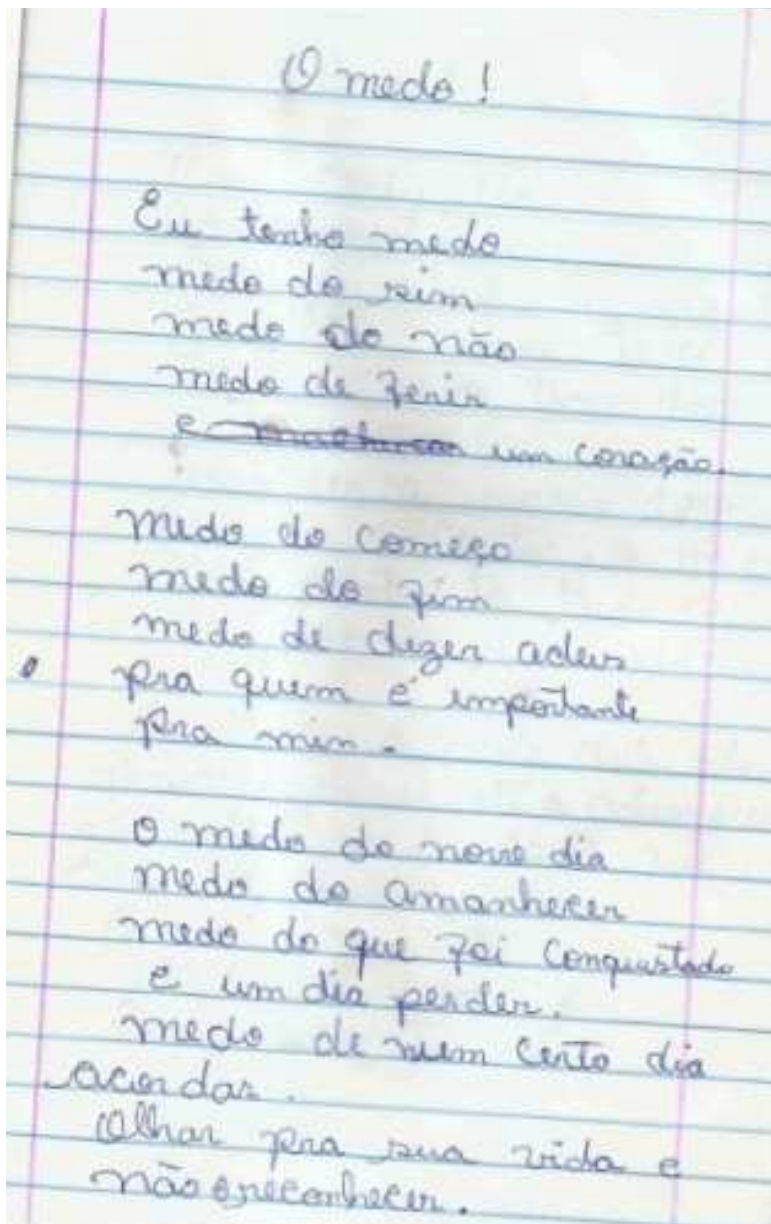 O medo!
Eu tenho medo
medo do sim
medo do não
medo de ferir
e machucar um coração.
medo do começo
medo do fim
medo de dizer adeus
pra quem é importante
pra mim.
O medo do novo dia
medo do amanhecer
medo do que foi conquistado
e um dia perder.
medo de num certo dia
acordar.
Olhar pra sua vida e
não reconhecer.